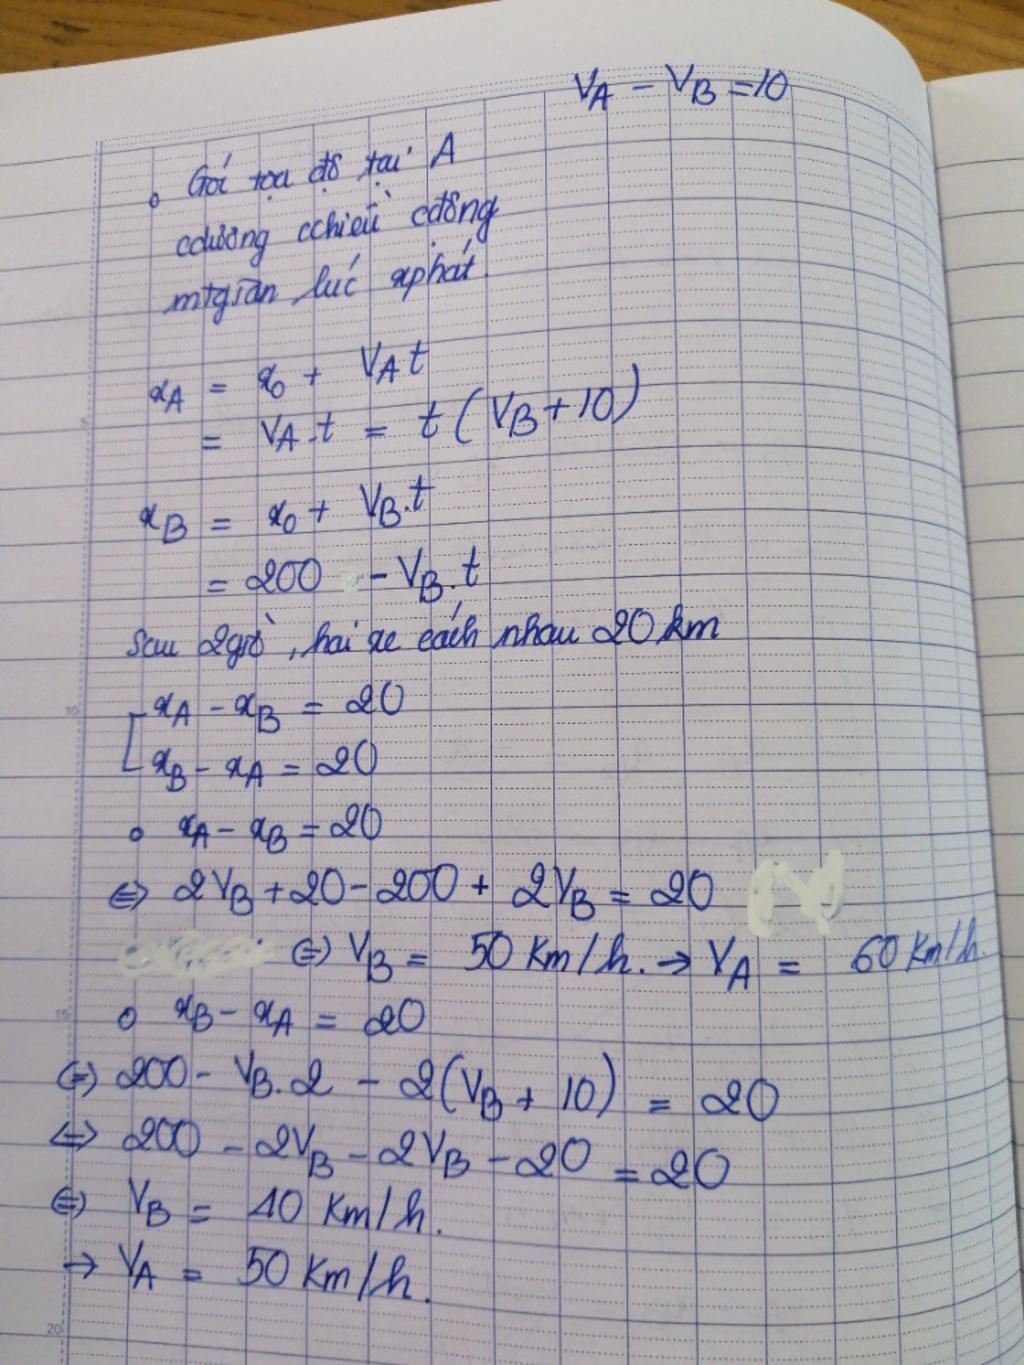 VA - VB = 10
Gốc tọa độ tại A
cdương cchiều cđộng
mtgian lúc xphát
xA = x0 + VA t
= VA.t = t (VB + 10)
xB = x0 + VB.t
= 200 - VB.t
Sau 2giờ, hai xe cách nhau 20 km
xA - xB = 20
xB - xA = 20
xA - xB = 20
⇔ 2VB + 20 - 200 + 2VB = 20
⇔ VB = 50 Km/h. → VA = 60 Km/h.
xB - xA = 20
⇔ 200 - VB.2 - 2(VB + 10) = 20
⇔ 200 - 2VB - 2VB - 20 = 20
⇔ VB = 40 Km/h.
→ VA = 50 Km/h.